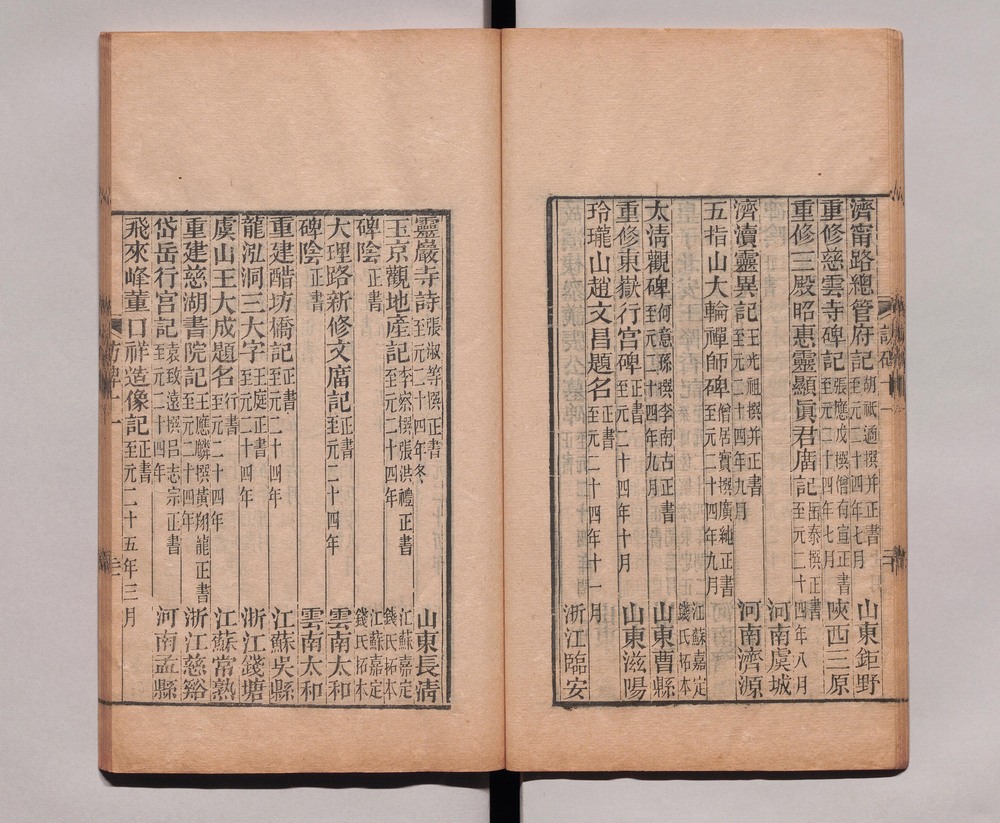 濟甯路總管府記 胡祇遹撰并正書 至元二十四年七月 山東鉅野
重修慈雲寺碑記 張應戊撰僧有宣正書 至元二十四年七月 陝西三原
重修三殿昭惠靈顯眞君廟記 岳泰撰正書 至元二十四年八月 河南虞城
濟瀆靈異記 王光祖撰并正書 至元二十四年九月 河南濟源
五指山大輪禪師碑 僧居實撰廣純正書 至元二十四年九月 江蘇嘉定錢氏拓本
太淸觀碑 何意孫撰李南古正書 至元二十四年九月 山東曹縣
重修東嶽行宮碑 正書 至元二十四年十月 山東滋陽
玲瓏山趙文昌題名 正書 至元二十四年十一月 浙江臨安
靈巖寺詩 張淑等撰正書 至元二十四年冬 山東長淸
玉京觀地產記 李察撰張洪禮正書 至元二十四年 江蘇嘉定錢氏拓本
碑陰 正書 江蘇嘉定錢氏拓本
大理路新修文廟記 正書 至元二十四年 雲南太和
碑陰 正書 雲南太和
重建醋坊橋記 正書 至元二十四年 江蘇吳縣
龍泓洞三大字 王庭正書 至元二十四年 浙江錢塘
虞山王大成題名 行書 至元二十四年 江蘇常熟
重建慈湖書院記 王應麟撰黃翔龍正書 至元二十四年 浙江慈谿
岱岳行宮記 袁致遠撰呂志宗正書 至元二十四年 河南孟縣
飛來峰董□祥造像記 正書 至元二十五年三月